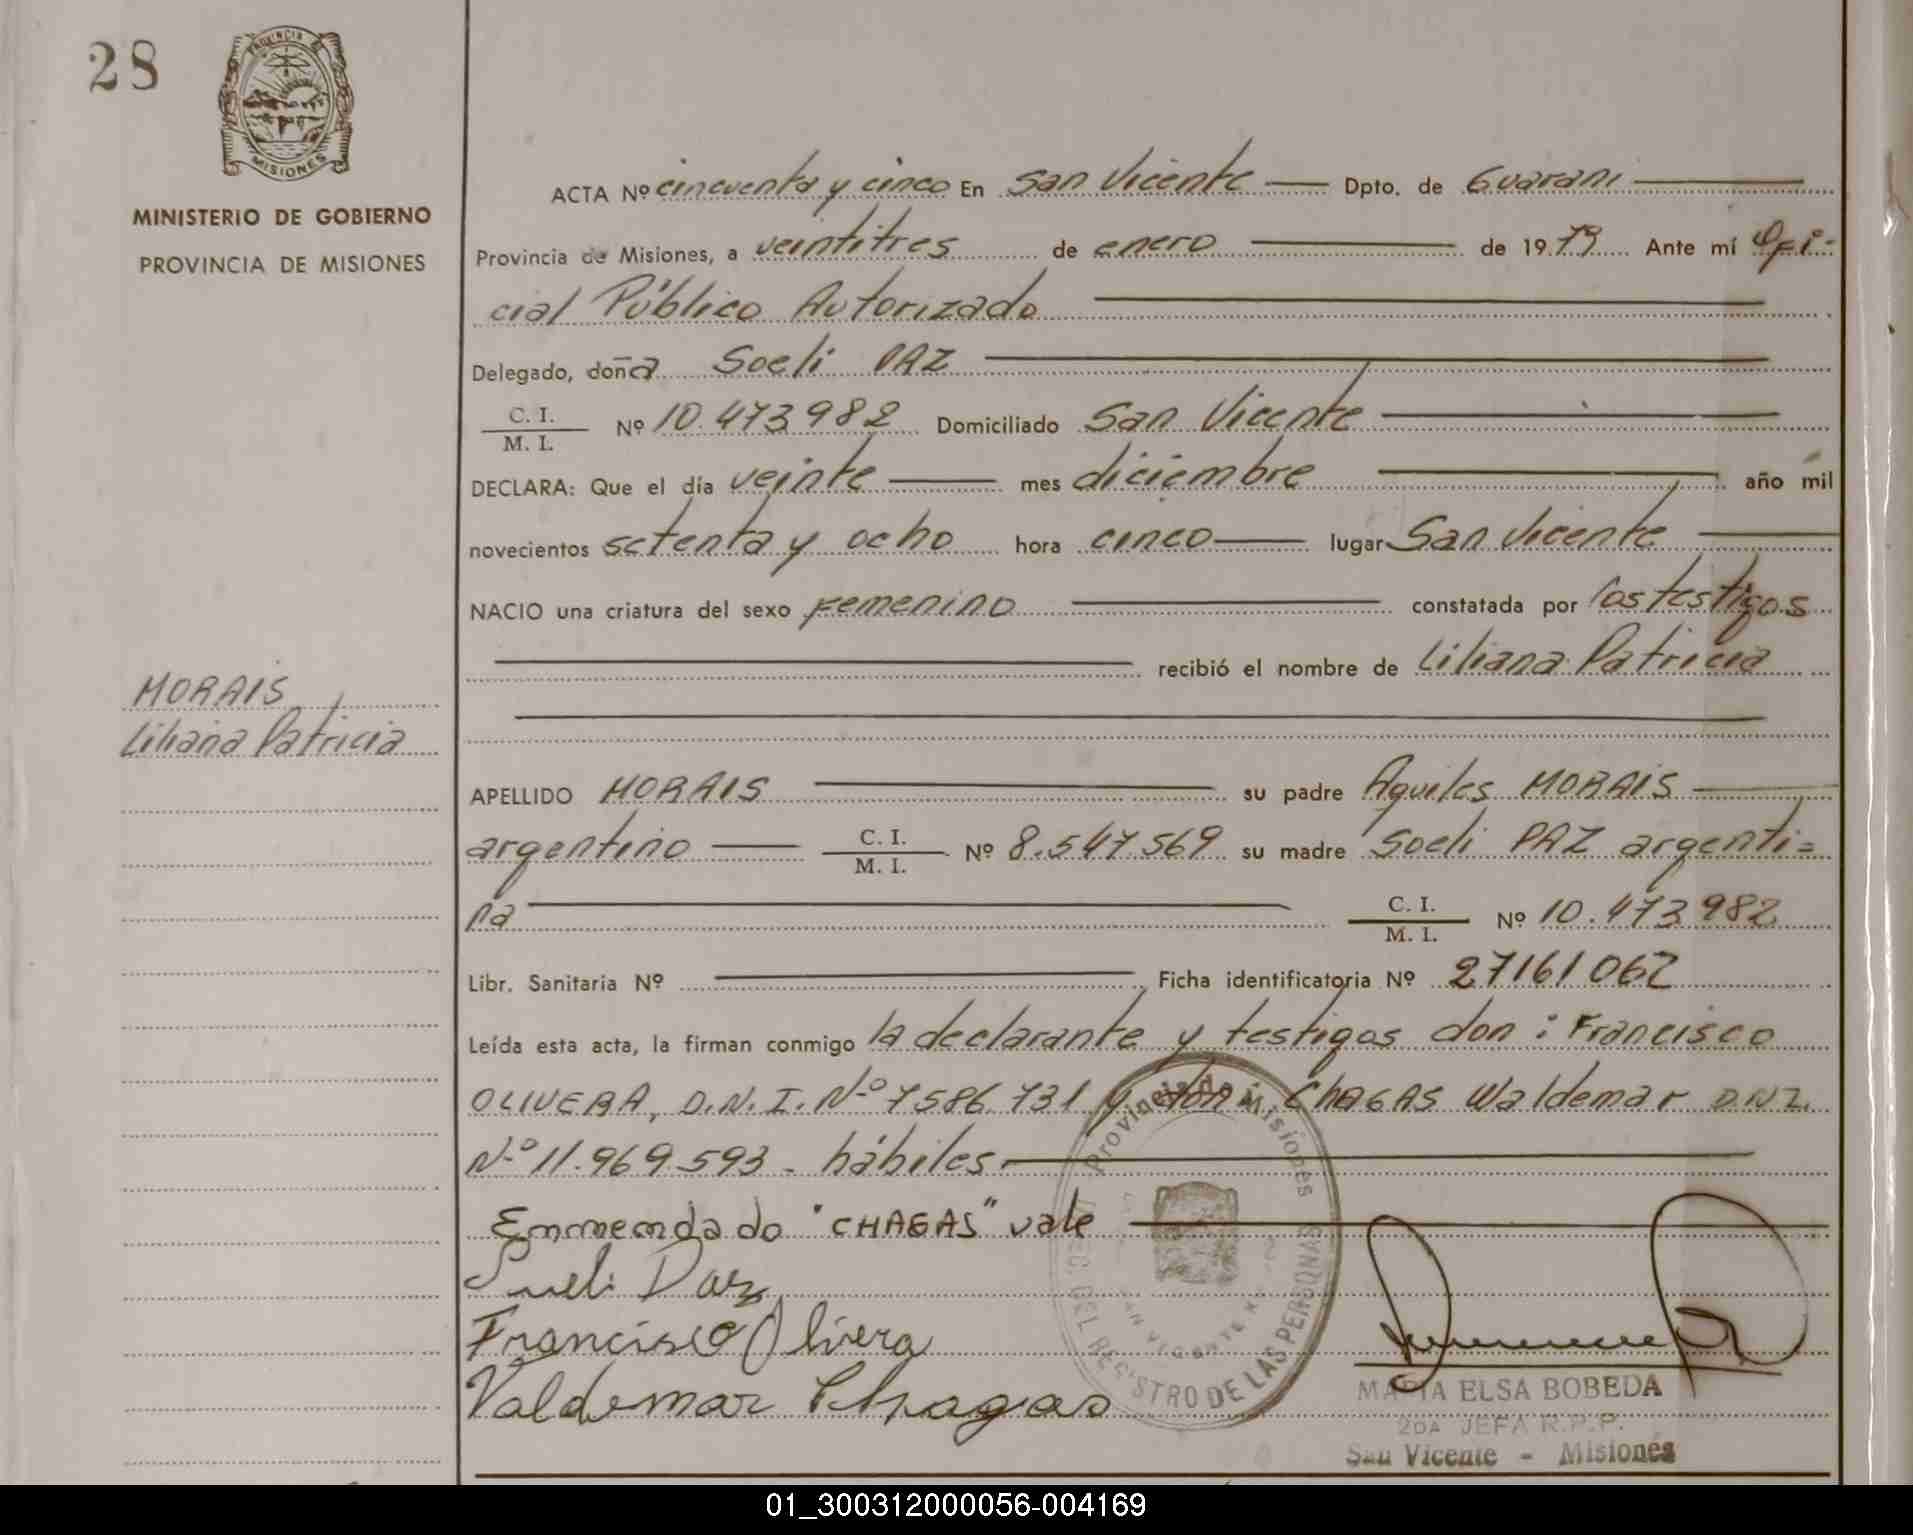 28
PROVINCIA DE
MISIONES
MINISTERIO DE GOBIERNO
PROVINCIA DE MISIONES
ACTA Nº cincuenta y cinco En San Vicente Dpto. de Guarani
Provincia de Misiones, a veintitres de enero de 1979 Ante mí Ofi-
cial Público Autorizado
Delegado, doña Soeli PAZ
C. I.
M. I. Nº 10.473982 Domiciliado San Vicente
DECLARA: Que el día veinte mes diciembre año mil
novecientos setenta y ocho hora cinco lugar San Vicente
NACIO una criatura del sexo Femenino constatada por los testigos
recibió el nombre de Liliana Patricia
MORAIS
Liliana Patricia
APELLIDO MORAIS su padre Aquiles MORAIS
argentino C. I.
M. I. Nº 8.547.569 su madre Soeli PAZ argenti=
na C. I.
M. I. Nº 10.473982
Libr. Sanitaria Nº Ficha identificatoria Nº 27161062
Leída esta acta, la firman conmigo la declarante y testigos don: Francisco
OLIVERA, D.N.I. Nº 7586.731 y don: CHAGAS Waldemar D.N.I.
Nº 11.969.593- hábiles.
Enmendado "CHAGAS" vale
Sueli Paz
Francisco Olivera
Valdemar Chagas
Provincia de Misiones
DEL REGISTRO DE LAS PERSONAS
SAN VICENTE
MARIA ELSA BOBEDA
2DA JEFA R.P.P.
San Vicente - Misiones
01_300312000056-004169